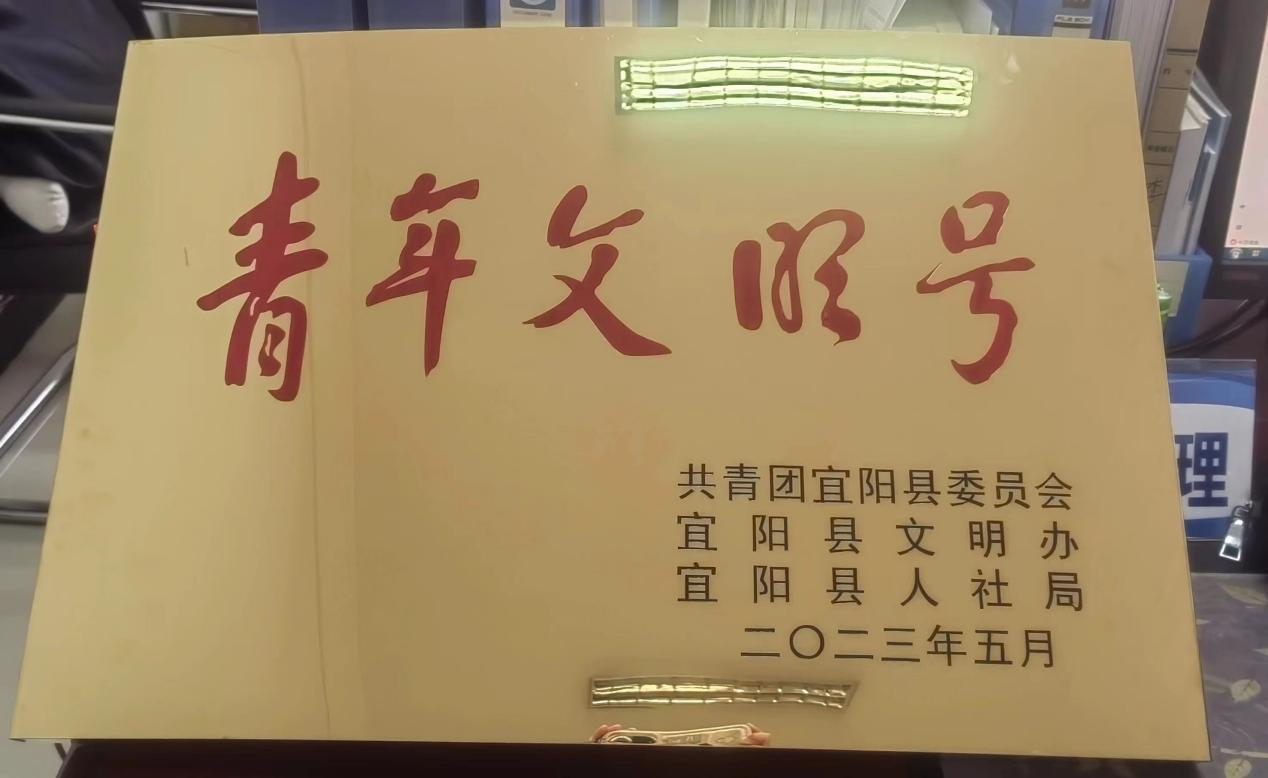 青年文明号
共青团宜阳县委员会
宜阳县文明办
宜阳县人社局
二〇二三年五月
理